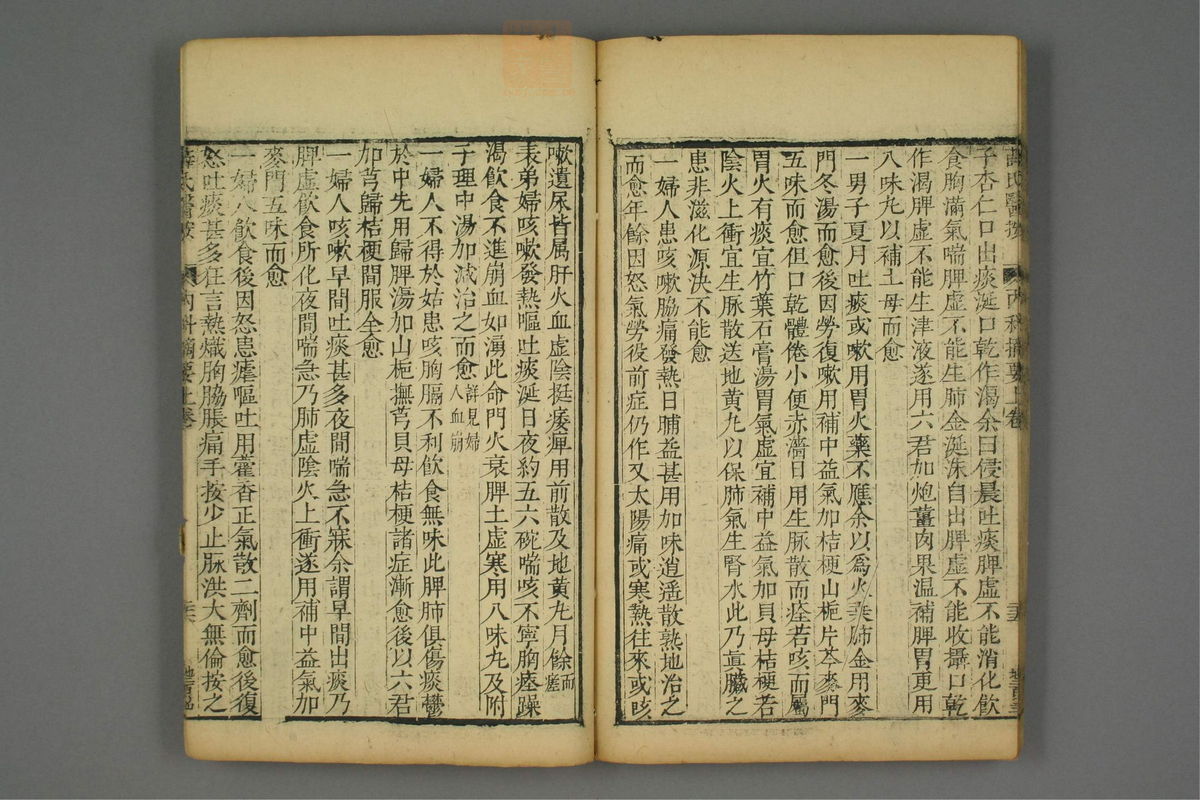 薛氏醫按 內科摘要上卷
子杏仁口出痰涎口乾作渴余曰侵晨吐痰脾虛不能消化飲
食胸滿氣喘脾虛不能生肺金涎沫自出脾虛不能收攝口乾
作渴脾虛不能生津液遂用六君加炮薑肉果温補脾胃更用
八味丸以補土母而愈
一男子夏月吐痰或嗽用胃火藥不應余以爲火乗肺金用麥
門冬湯而愈後因勞復嗽用補中益氣加桔梗山梔片芩麥門
五味而愈但口乾體倦小便赤濇日用生脉散而痊若咳而屬
胃火有痰宜竹葉石膏湯胃氣虛宜補中益氣加貝母桔梗若
陰火上衝宜生脉散送地黃丸以保肺氣生腎水此乃眞臟之
患非滋化源决不能愈
一婦人患咳嗽脇痛發熱日晡益甚用加味逍遥散熟地治之
而愈年餘因怒氣勞役前症仍作又太陽痛或寒熱往來或咳
嗽遺尿皆属肝火血虛陰挺痿痺用前散及地黃丸月餘而瘥
表弟婦咳嗽發熱嘔吐痰涎日夜約五六碗喘咳不寧胸痞躁
渴飲食不進崩血如湧此命門火衰脾土虛寒用八味丸及附
子理中湯加減治之而愈詳見婦人血崩
一婦人不得於姑患咳胸膈不利飲食無味此脾肺俱傷痰鬱
於中先用歸脾湯加山梔撫芎貝母桔梗諸症漸愈後以六君
加芎歸桔梗間服全愈
一婦人咳嗽早間吐痰甚多夜間喘急不寐余謂早間出痰乃
脾虛飲食所化夜間喘急乃肺虛陰火上衝遂用補中益氣加
麥門五味而愈
一婦人飲食後因怒患瘧嘔吐用藿香正氣散二劑而愈後復
怒吐痰甚多狂言熱熾胸脇脹痛手按少止脉洪大無倫按之
薛氏醫按 內科摘要上卷